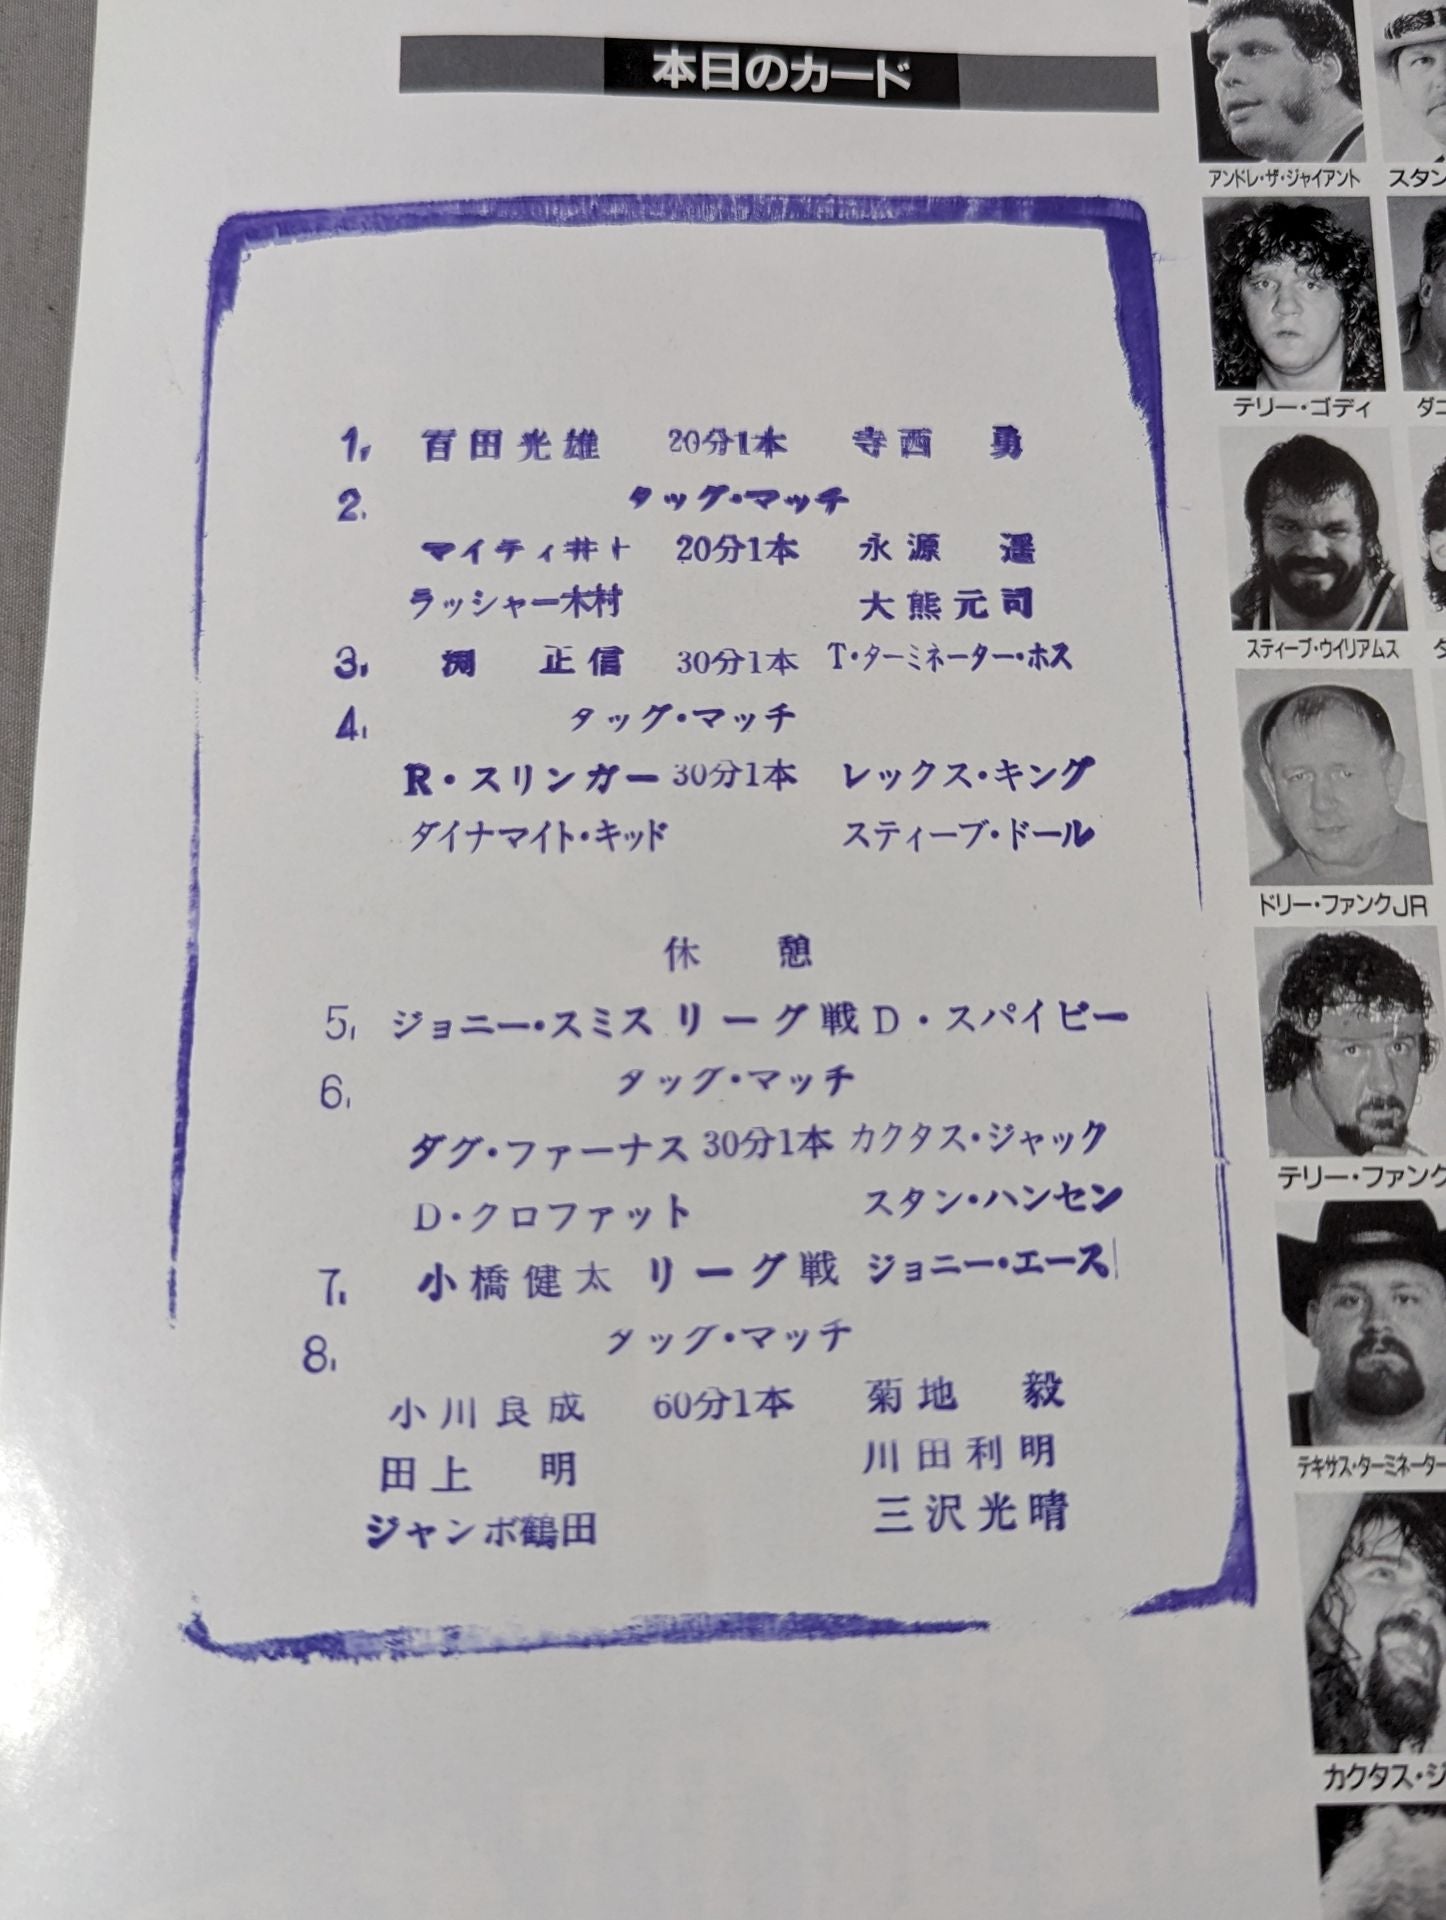 本日のカード
1. 百田光雄 20分1本 寺西 勇
2. タッグ・マッチ
マイティ井上 20分1本 永源 遥
ラッシャー木村 大熊元司
3. 渕 正信 30分1本 T・ターミネーター・ホス
4. タッグ・マッチ
R・スリンガー 30分1本 レックス・キング
ダイナマイト・キッド スティーブ・ドール
休 憩
5. ジョニー・スミス リーグ戦 D・スパイビー
6. タッグ・マッチ
ダグ・ファーナス 30分1本 カクタス・ジャック
D・クロファット スタン・ハンセン
7. 小橋健太 リーグ戦 ジョニー・エース
8. タッグ・マッチ
小川良成 60分1本 菊地 毅
田上 明 川田利明
ジャンボ鶴田 三沢光晴
アンドレ・ザ・ジャイアント スタン
テリー・ゴディ ダニ
スティーブ・ウイリアムス ダ
ドリー・ファンクJR
テリー・ファンク
テキサス・ターミネーター
カクタス・ジ